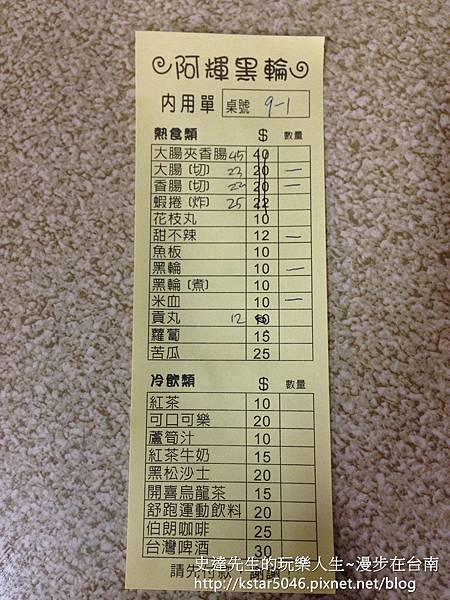 阿輝黑輪
內用單 桌號 9-1
熱食類 $ 數量
大腸夾香腸 45 40
大腸(切) 23 20 一
香腸(切) 22 20 一
蝦捲(炸) 25 22
花枝丸 10
甜不辣 12 一
魚板 10
黑輪 10 一
黑輪(煮) 10
米血 10 一
貢丸 12 10
蘿蔔 15
苦瓜 25
冷飲類 $ 數量
紅茶 10
可口可樂 20
蘆筍汁 10
紅茶牛奶 15
黑松沙士 20
開喜烏龍茶 15
舒跑運動飲料 20
伯朗咖啡 25
台灣啤酒 30
請先付款 謝謝
史達先生的玩樂人生~漫步在台南
http://kstar5046.pixnet.net/blog